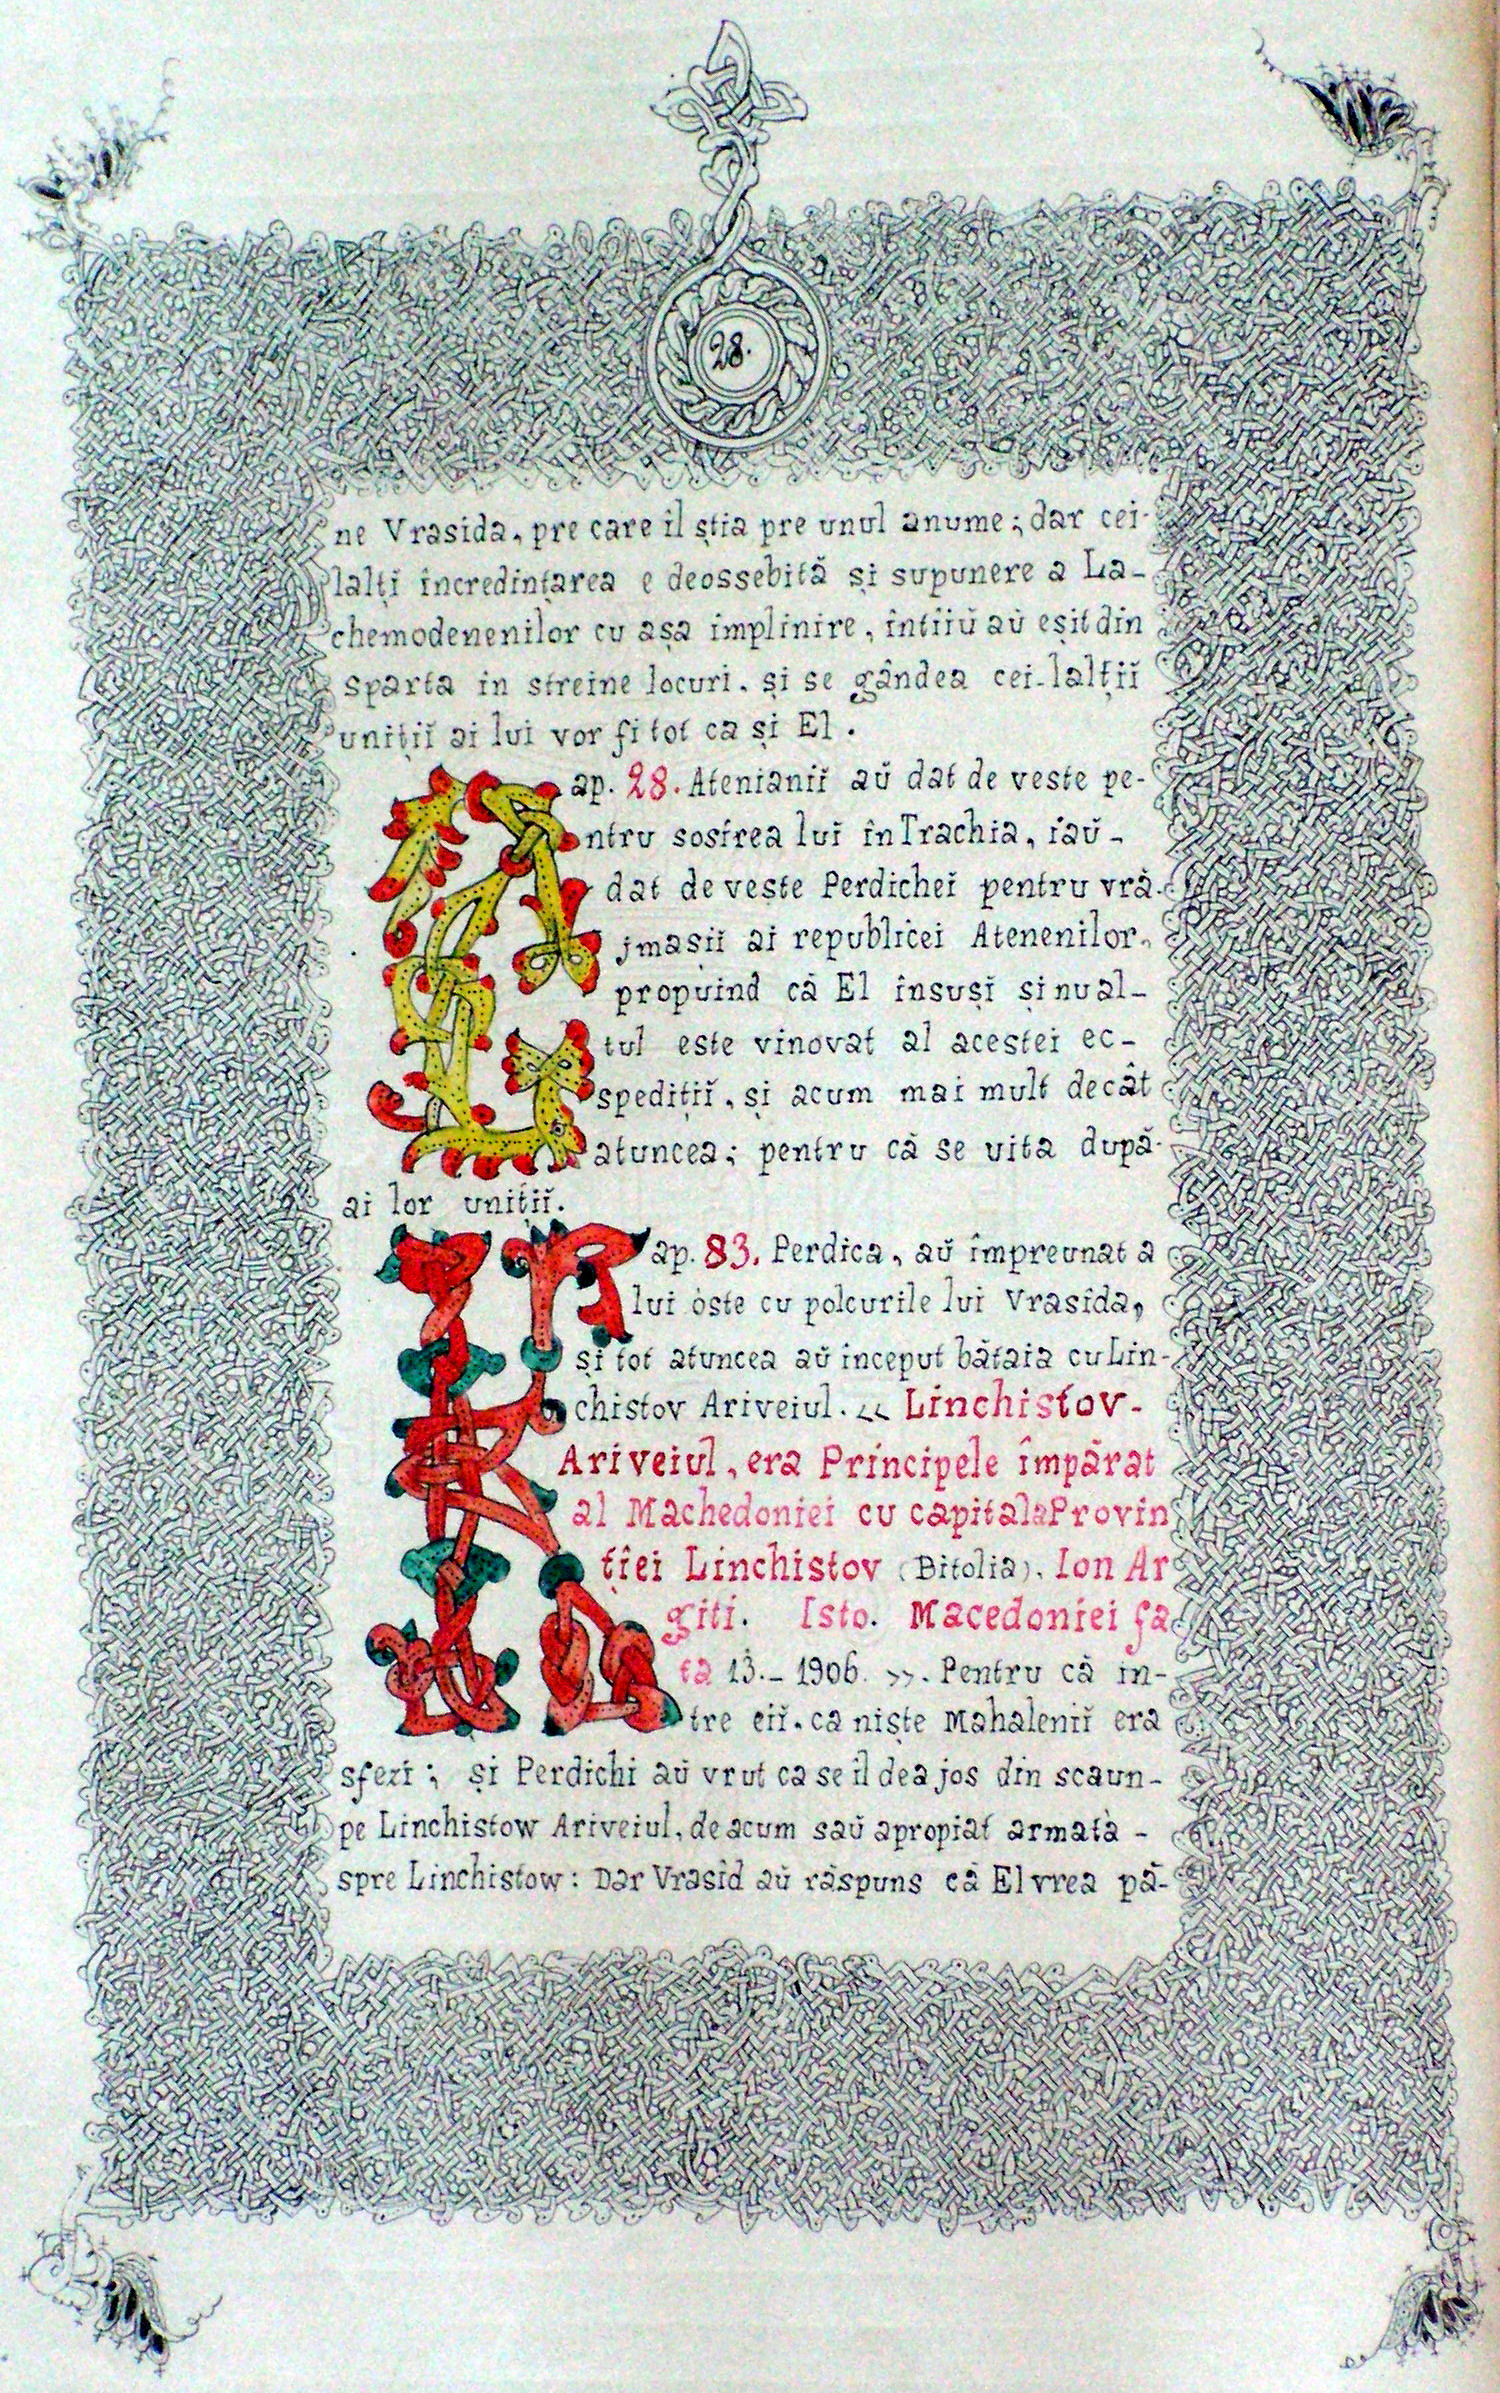 28.
ne Vrasida, pre care il știa pre unul anume; dar cei-
lalți încredințarea e deossebită și supunere a La-
chemodenenilor cu așa implinire, întiiŭ aŭ eșit din
sparta in streine locuri. și se gândea cei-lalțiĭ
unițiĭ ai lui vor fi tot ca și El.
Cap. 28. Atenianiĭ aŭ dat de veste pe-
ntru sosirea luĭ în Trachia, i'aŭ-
dat de veste Perdicheĭ pentru vră-
jmasiĭ ai republicei Atenenilor,
propuind că El însușĭ și nu al-
tul este vinovat al acestei ec-
spedițiĭ, și acum mai mult decât
atuncea; pentru că se uita după-
ai lor unițiĭ.
Cap. 83. Perdica, aŭ împreunat a
lui òste cu polcurile lui Vrasida,
și tot atuncea aŭ inceput bătaia cu Lin-
chistov Ariveiul. << Linchistov-
Ariveiul, era Principele împărat
al Machedoniei cu capitala Provin
țîei Linchistov (Bitolia). Ion Ar
giti. Isto. Macedoniei fa
ta 13.- 1906. >>. Pentru că in-
tre eiĭ, ca niște Mahaleniĭ era
sfezi; și Perdichi aŭ vrut ca se il dea jos din scaun-
pe Linchistow Ariveiul, de acum saŭ apropiat armatà -
spre Linchistow: Dar Vrasid aŭ răspuns că El vrea pă-